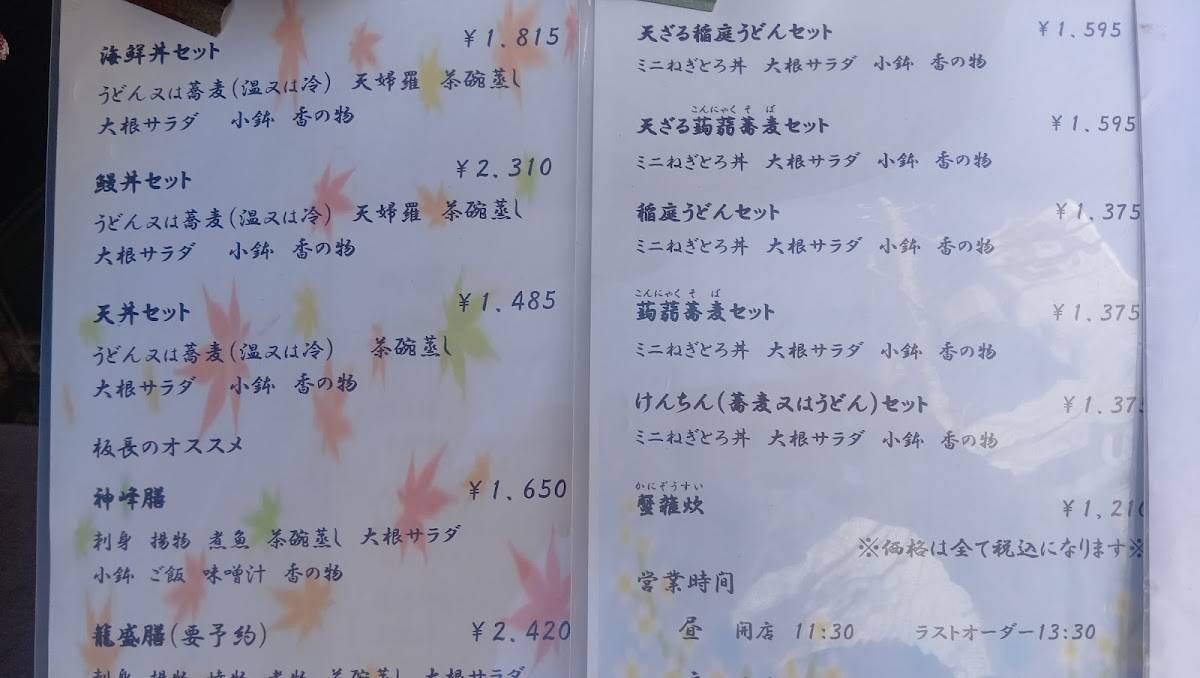 海鮮丼セット ¥1.815
うどん又は蕎麦(温又は冷) 天婦羅 茶碗蒸し
大根サラダ 小鉢 香の物
鰻丼セット ¥2.310
うどん又は蕎麦(温又は冷) 天婦羅 茶碗蒸し
大根サラダ 小鉢 香の物
天丼セット ¥1.485
うどん又は蕎麦(温又は冷) 茶碗蒸し
大根サラダ 小鉢 香の物
板長のオススメ
神峰膳 ¥1.650
刺身 揚物 煮魚 茶碗蒸し 大根サラダ
小鉢 ご飯 味噌汁 香の物
龍盛膳(要予約) ¥2.420
刺身 揚物 焼物 煮物 茶碗蒸し 大根サラダ
天ざる稲庭うどんセット ¥1.595
ミニねぎとろ丼 大根サラダ 小鉢 香の物
こんにゃくそば
天ざる蒟蒻蕎麦セット ¥1.595
ミニねぎとろ丼 大根サラダ 小鉢 香の物
稲庭うどんセット ¥1.375
ミニねぎとろ丼 大根サラダ 小鉢 香の物
こんにゃくそば
蒟蒻蕎麦セット ¥1.375
ミニねぎとろ丼 大根サラダ 小鉢 香の物
けんちん(蕎麦又はうどん)セット ¥1.375
ミニねぎとろ丼 大根サラダ 小鉢 香の物
かにぞうすい
蟹雑炊 ¥1,210
※価格は全て税込になります※
営業時間
昼 開店 11:30 ラストオーダー13:30